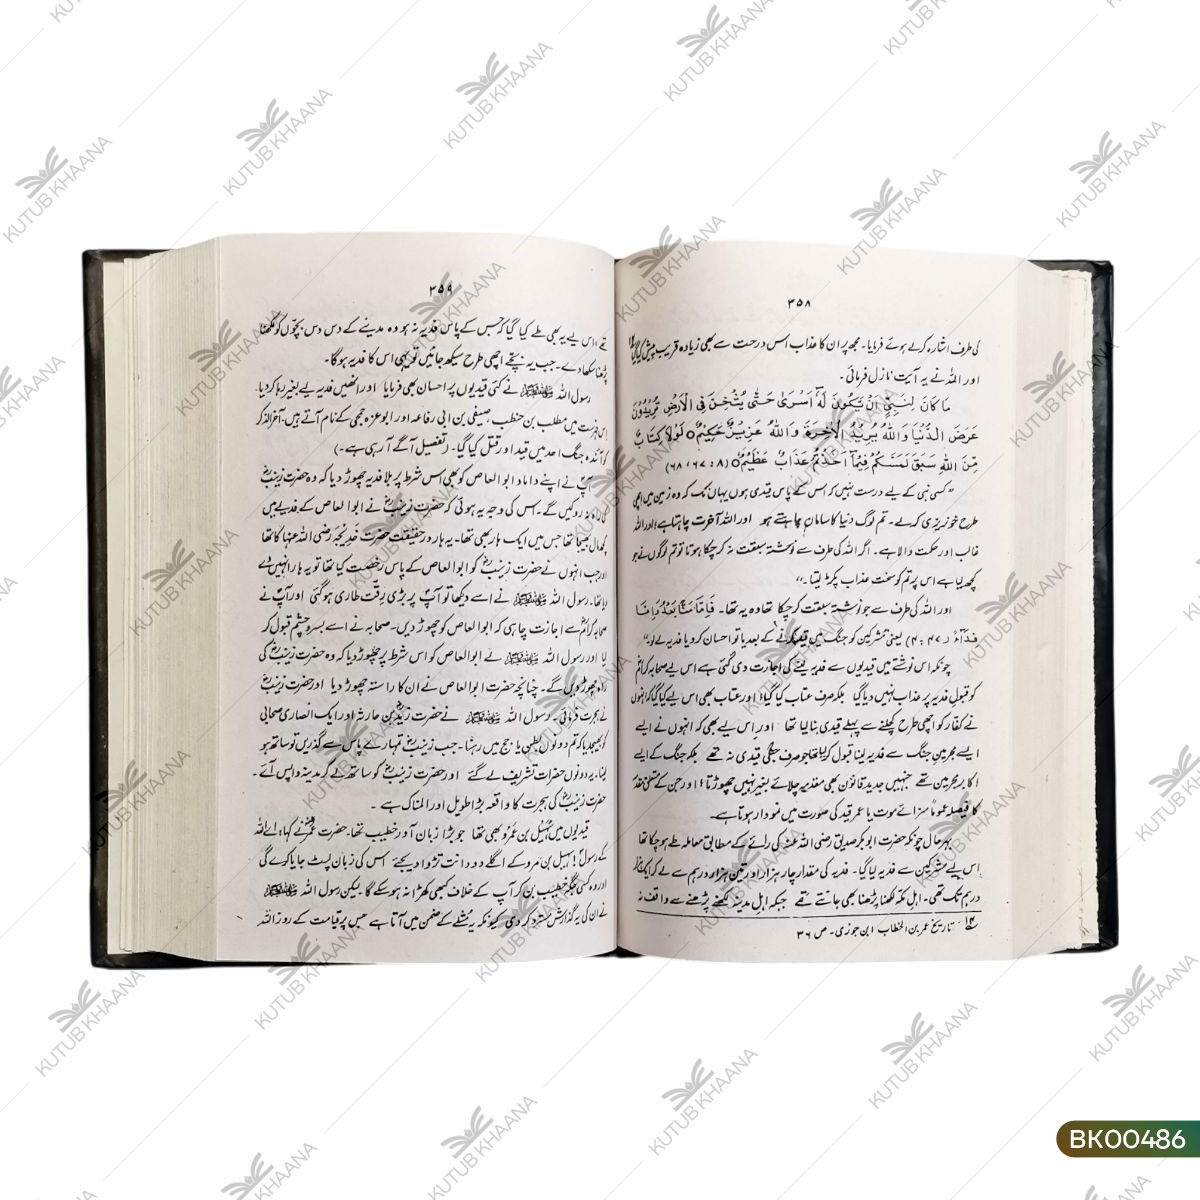 ۳۵۸
کی طرف اشارہ کرتے ہوئے فرمایا۔ مجھ پر ان کا عذاب اس درخت سے بھی زیادہ قریب پیش کیا گیا
اور اللہ نے یہ آیت نازل فرمائی۔
مَا كَانَ لِنَبِيٍّ اَنْ يَّكُوْنَ لَهٗٓ اَسْرٰى حَتّٰى يُثْخِنَ فِي الْاَرْضِ تُرِيْدُوْنَ
عَرَضَ الدُّنْيَا وَاللّٰهُ يُرِيْدُ الْاٰخِرَةَ وَاللّٰهُ عَزِيْزٌ حَكِيْمٌ○ لَوْلَا كِتَابٌ
مِّنَ اللّٰهِ سَبَقَ لَمَسَّكُمْ فِيْمَآ اَخَذْتُمْ عَذَابٌ عَظِيْمٌ○ (۸: ۶۷، ۶۸)
"کسی نبی کے لیے درست نہیں کہ اس کے پاس قیدی ہوں یہاں تک کہ وہ زمین میں اچھی
طرح خونریزی کرلے۔ تم لوگ دنیا کا سامان چاہتے ہو اور اللہ آخرت چاہتا ہے، اور اللہ
غالب اور حکمت والا ہے۔ اگر اللہ کی طرف سے نوشتہ سبقت نہ کر چکا ہوتا تو تم لوگوں نے جو
کچھ لیا ہے اس پر تم کو سخت عذاب پکڑ لیتا۔"
اور اللہ کی طرف سے جو نوشتہ سبقت کر چکا تھا وہ یہ تھا۔ فَاِمَّا مَنًّا بَعْدُ وَاِمَّا
فِدَآءً (۴۷: ۴) یعنی مشرکین کو جنگ میں قید کرنے کے بعد یا تو احسان کرو یا فدیہ لے لو۔"
چونکہ اس نوشتے میں قیدیوں سے فدیہ لینے کی اجازت دی گئی ہے اس لیے صحابہ کرامؓ
کو قبول فدیہ پر عذاب نہیں دیا گیا بلکہ صرف عتاب کیا گیا اور عتاب بھی اس لیے کیا گیا کہ انہوں
نے کفار کو اچھی طرح کچلنے سے پہلے قیدی بنا لیا تھا اور اس لیے بھی کہ انہوں نے ایسے
ایسے مجرمینِ جنگ سے فدیہ لینا قبول کر لیا تھا جو صرف جنگی قیدی نہ تھے بلکہ جنگ کے ایسے
اکابر مجرمین تھے جنہیں جدید قانون بھی مقدمہ چلائے بغیر نہیں چھوڑتا؛ اور جن کے متعلق مقدمے
کا فیصلہ عموماً سزائے موت یا عمر قید کی صورت میں نمودار ہوتا ہے۔
بہرحال چونکہ حضرت ابوبکر صدیق رضی اللہ عنہ کی رائے کے مطابق معاملہ طے ہو چکا تھا
اس لیے مشرکین سے فدیہ لیا گیا۔ فدیہ کی مقدار چار ہزار اور تین ہزار درہم سے لے کر ایک ہزار
درہم تک تھی۔ اہل مکہ لکھنا پڑھنا بھی جانتے تھے جبکہ اہلِ مدینہ لکھنے پڑھنے سے واقف نہ
تاریخ عمر بن الخطاب ابن جوزی۔ ص ۳۶
۳۵۹
تھے، اس لیے یہ بھی طے کیا گیا کہ جس کے پاس فدیہ نہ ہو وہ مدینے کے دس دس بچّوں کو لکھنا
پڑھنا سکھا دے۔ جب یہ بچّے اچھی طرح سیکھ جائیں تو یہی اس کا فدیہ ہوگا۔
رسول اللہ ﷺ نے کئی قیدیوں پر احسان بھی فرمایا اور انھیں فدیہ لیے بغیر رہا کر دیا۔
اس فہرست میں مطلب بن حنطب، صیفی بن ابی رفاعہ اور ابو عزہ جمحی کے نام آتے ہیں۔ آخر الذکر
کو آئندہ جنگ احد میں قید اور قتل کیا گیا۔ (تفصیل آگے آ رہی ہے۔)
آپؐ نے اپنے داماد ابوالعاص کو بھی اس شرط پر بلا فدیہ چھوڑ دیا کہ وہ حضرت زینبؓ
کی راہ نہ روکیں گے۔ اس کی وجہ یہ ہوئی کہ حضرت زینبؓ نے ابوالعاص کے فدیے میں
کچھ مال بھیجا تھا جس میں ایک ہار بھی تھا۔ یہ ہار درحقیقت حضرت خدیجہ رضی اللہ عنہا کا تھا
اور جب انہوں نے حضرت زینبؓ کو ابوالعاص کے پاس رخصت کیا تھا تو یہ ہار انہیں دے
دیا تھا۔ رسول اللہ ﷺ نے اسے دیکھا تو آپؐ پر بڑی رقّت طاری ہوگئی اور آپؐ نے
صحابہ کرامؓ سے اجازت چاہی کہ ابوالعاص کو چھوڑ دیں۔ صحابہ نے اسے بسر و چشم قبول کر
لیا اور رسول اللہ ﷺ نے ابوالعاص کو اس شرط پر چھوڑ دیا کہ وہ حضرت زینبؓ کی
راہ چھوڑ دیں گے۔ چنانچہ حضرت ابوالعاص نے ان کا راستہ چھوڑ دیا اور حضرت زینبؓ
نے ہجرت فرمائی۔ رسول اللہ ﷺ نے حضرت زیدؓ بن حارثہ اور ایک انصاری صحابی
کو بھیج دیا کہ تم دونوں بطن یاجج میں رہنا۔ جب زینبؓ تمہارے پاس سے گذریں تو ساتھ ہو
لینا۔ یہ دونوں حضرات تشریف لے گئے اور حضرت زینبؓ کو ساتھ لے کر مدینہ واپس آئے۔
حضرت زینبؓ کی ہجرت کا واقعہ بڑا طویل اور المناک ہے۔
قیدیوں میں سُہَیل بن عمرو بھی تھا جو بڑا زبان آور خطیب تھا۔ حضرت عمرؓ نے کہا؛ اے اللہ
کے رسولؐ! سہیل بن عمرو کے اگلے دو دانت تڑوا دیجئے اس کی زبان لپٹ جایا کرے گی
اور وہ کسی جگہ خطیب بن کر آپ کے خلاف کبھی کھڑا نہ ہو سکے گا۔ لیکن رسول اللہ ﷺ
نے ان کی یہ گذارش مسترد کر دی کیونکہ یہ مُثلے کے ضمن میں آتا ہے جس پر قیامت کے روز اللہ
BK00486
KUTUB KHAANA